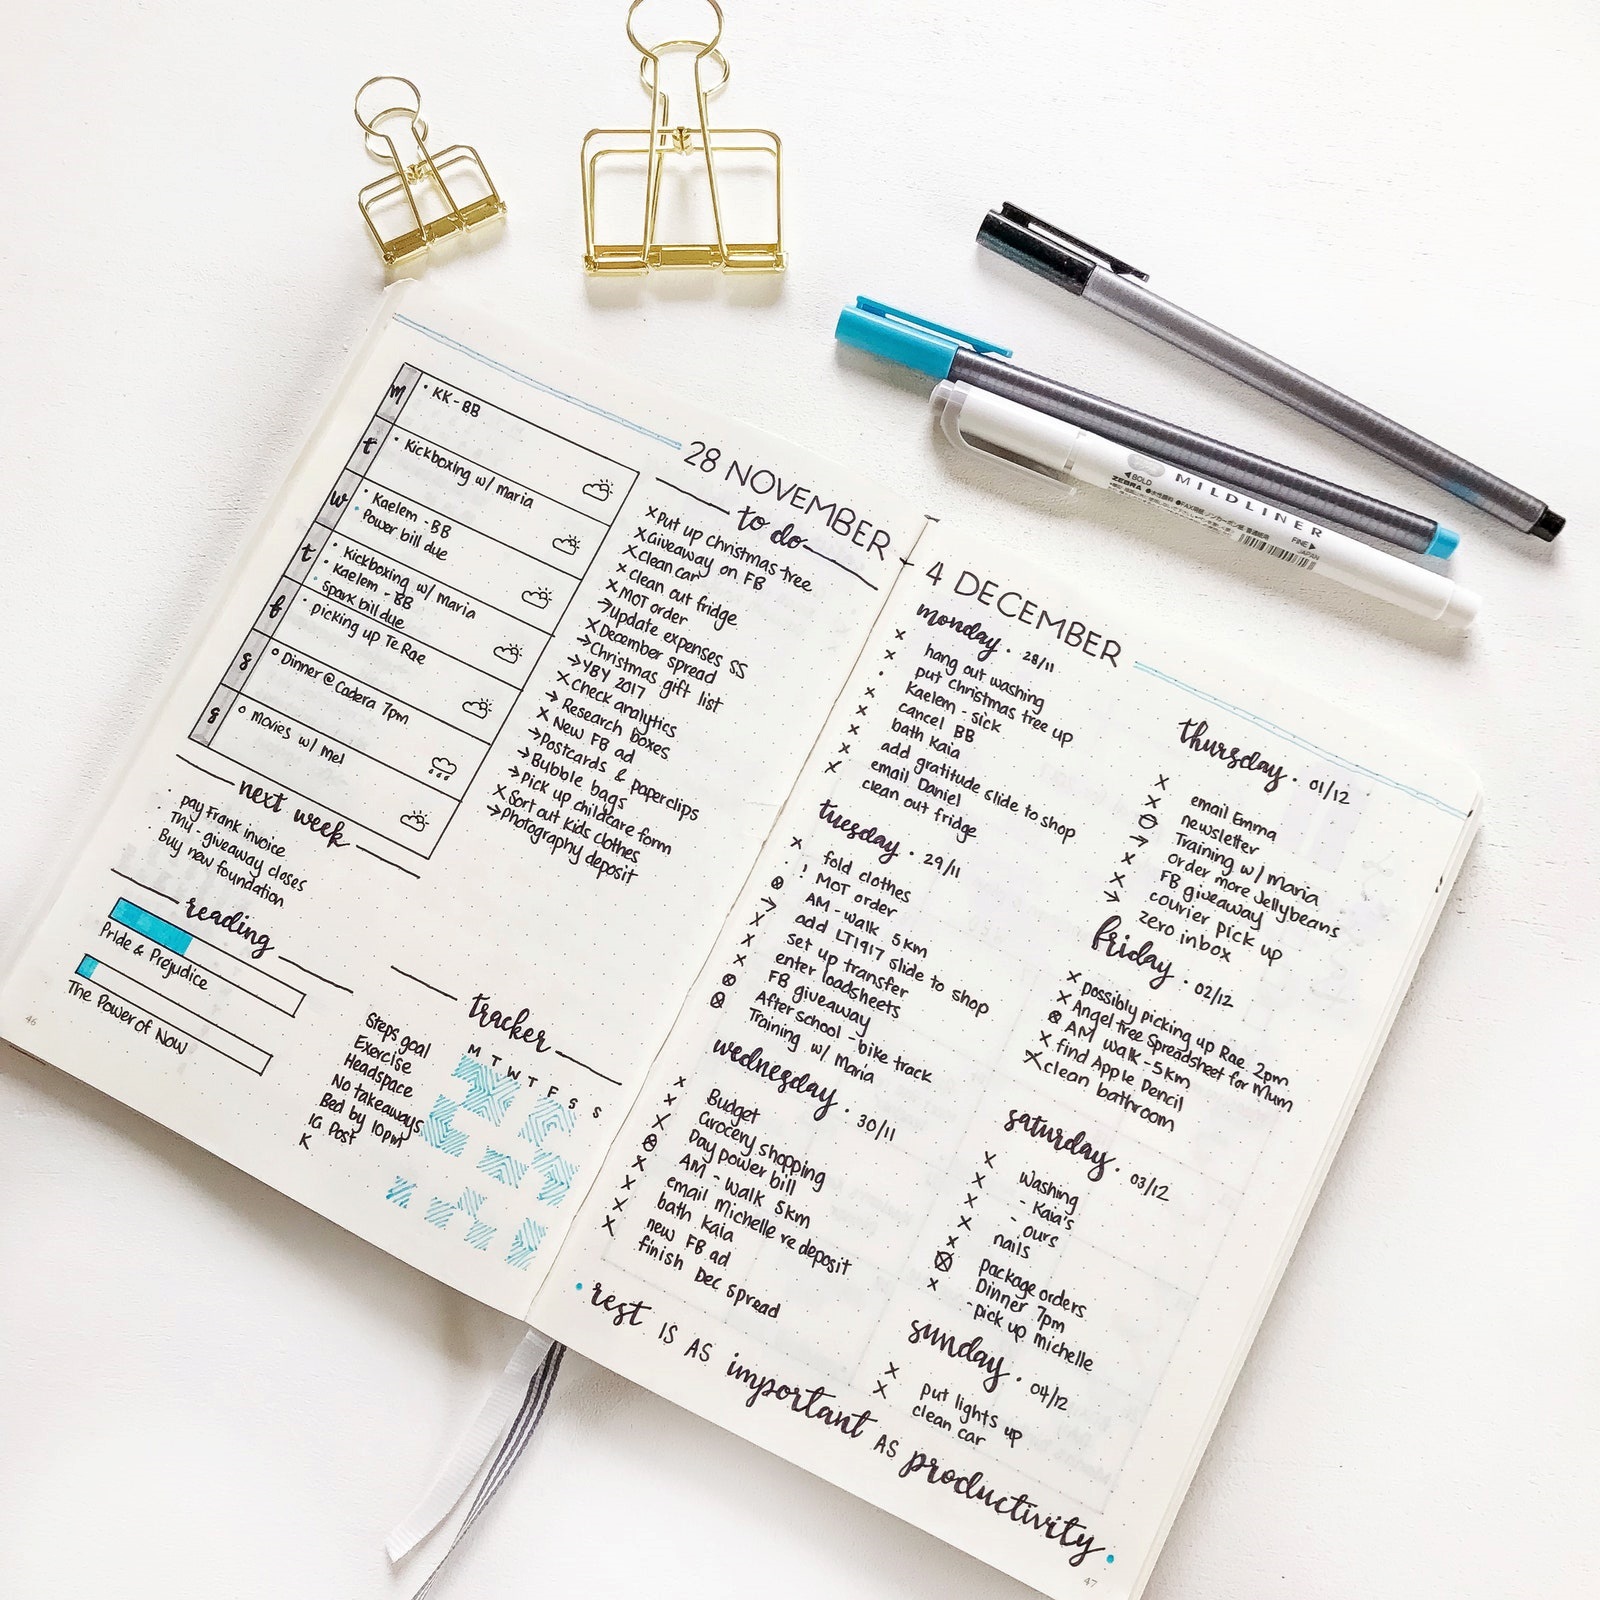 28 NOVEMBER
m
• KK - BB
t
• Kickboxing w/ Maria
w
• Kaelem - BB
• Power bill due
t
• Kickboxing w/ Maria
• Kaelem - BB
• Spark bill due
f
• picking up Te Rae
s
o Dinner @ Cadera 7pm
s
o movies w/ mel
next week
· pay Frank invoice
· Thu - giveaway closes
· Buy new foundation
reading
Pride & Prejudice
The Power of Now
46
to do
x Put up christmas tree
x Giveaway on FB
x Clean car
x Clean out fridge
x MOT order
→ update expenses SS
x December spread
→ Christmas gift list
→ YBY 2017
x Check analytics
→ Research boxes
x New FB ad
→ Postcards & paperclips
→ Bubble bags
→ Pick up childcare form
x Sort out kids clothes
→ Photography deposit
tracker
M T W T F S S
Steps goal
Exercise
Headspace
No takeaways
Bed by 10pm
IG Post
K
4 DECEMBER
monday · 28/11
x hang out washing
x put Christmas tree up
· Kaelem - sick
x cancel BB
x bath Kaia
x add gratitude slide to shop
x email Daniel
x clean out fridge
tuesday · 29/11
x fold clothes
· ! MOT order
⊗ AM - walk 5km
→ add LT1917 slide to shop
x set up transfer
x enter loadsheets
x FB giveaway
⊗ After school - bike track
⊗ Training w/ Maria
wednesday · 30/11
x Budget
x Grocery shopping
x Pay power bill
⊗ AM - walk 5km
x email Michelle re deposit
x bath Kaia
x new FB ad
x finish Dec spread
thursday · 01/12
x email Emma
x newsletter
⊖ Training w/ Maria
→ order more Jellybeans
x FB giveaway
x courier pick up
→ zero inbox
friday · 02/12
x possibly picking up Rae 2pm
x Angel tree Spreadsheet for Mum
⊗ AM walk - 5km
x find Apple Pencil
x clean bathroom
saturday · 03/12
x washing
x - Kaia's
x - ours
x nails
x package orders
⊗ Dinner 7pm
x - pick up michelle
sunday · 04/12
x put lights up
x clean car
• rest IS AS important AS productivity •
47
◀BOLD
ZEBRA
MILDLINER
FINE▶
JAPAN